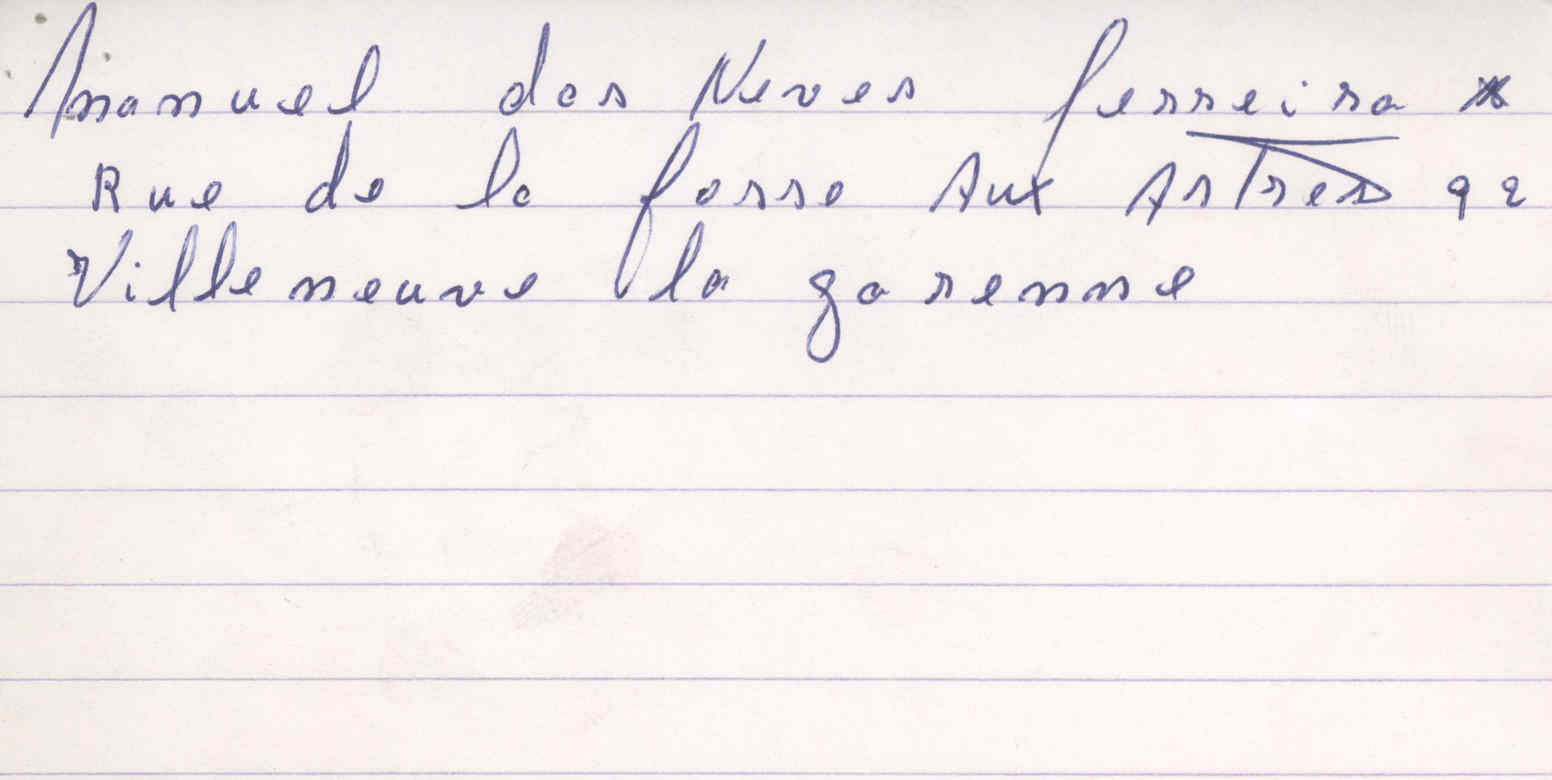 Manuel das Neves ferreira
Rue de la fosse Aux Astres 92
Villeneuve la garenne